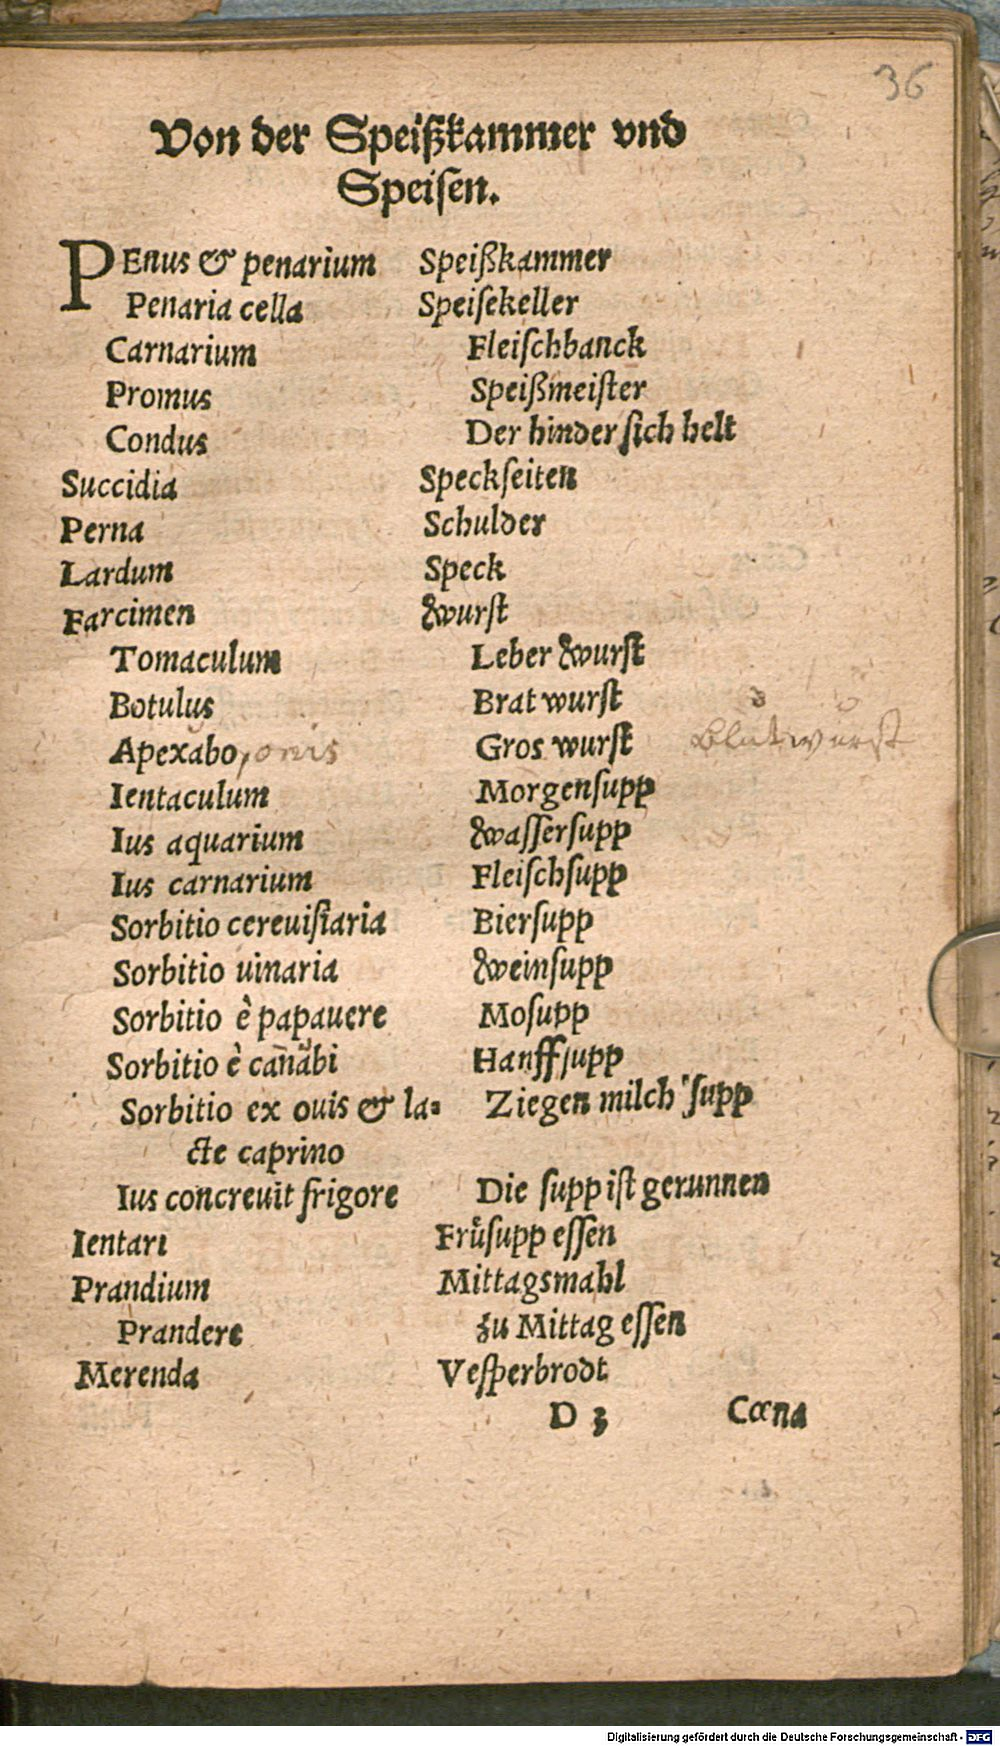 36
Von der Speißkammer vnd
Speisen.
PEnus & penarium Speißkammer
Penaria cella Speiſekeller
Carnarium Fleiſchbanck
Promus Speißmeiſter
Condus Der hinder ſich helt
Succidia Speckſeiten
Perna Schulder
Lardum Speck
Farcimen Wurſt
Tomaculum Leber Wurſt
Botulus Brat wurſt
Apexabo, onis Gros wurſt Blutwurſt
Ientaculum Morgenſupp
Ius aquarium Waſſerſupp
Ius carnarium Fleiſchſupp
Sorbitio cereuiſiaria Bierſupp
Sorbitio uinaria Weinſupp
Sorbitio è papauere Moſupp
Sorbitio è cañabi Hanffſupp
Sorbitio ex ouis & la= Ziegen milch ſupp
cte caprino
Ius concreuit frigore Die ſupp iſt gerunnen
Ientari Frůſupp eſſen
Prandium Mittagsmahl
Prandere zu Mittag eſſen
Merenda Veſperbrodt
D 3 Cœna
Digitalisierung gefördert durch die Deutsche Forschungsgemeinschaft - DFG